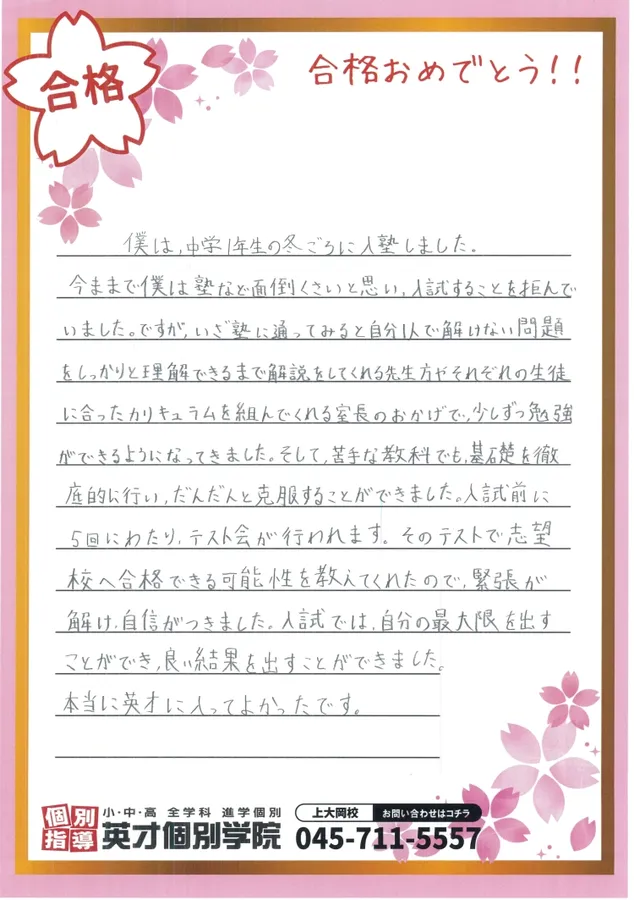 合格
合格おめでとう!!
僕は,中学1年生の冬ごろに入塾しました。
今ままで僕は塾など面倒くさいと思い,入試することを拒んで
いました。ですが,いざ塾に通ってみると自分1人で解けない問題
をしっかりと理解できるまで解説をしてくれる先生方やそれぞれの生徒
に合ったカリキュラムを組んでくれる室長のおかげで,少しずつ勉強
ができるようになってきました。そして,苦手な教科でも,基礎を徹
底的に行い,だんだんと克服することができました。入試前に
5回にわたり,テスト会が行われます。そのテストで志望
校へ合格できる可能性を教えてくれたので,緊張が
解け,自信がつきました。入試では,自分の最大限を出す
ことができ,良い結果を出すことができました。
本当に英才に入ってよかったです。
個別指導
小・中・高 全学科 進学個別
英才個別学院
上大岡校 お問い合わせはコチラ
045-711-5557